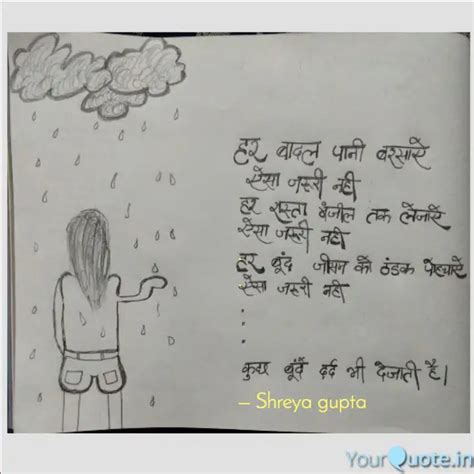 हर बादल पानी बरसाऐ
ऐसा जरूरी नही
हर रास्ता मंजील तक लेजाऐ
ऐसा जरूरी नही
हर बूंद जीवन को ठंडक पोहचाऐ
ऐसा जरूरी नही
.
.
.
.
कुछ बूंदें दर्द भी देजाती है।
– Shreya gupta
YourQuote.in